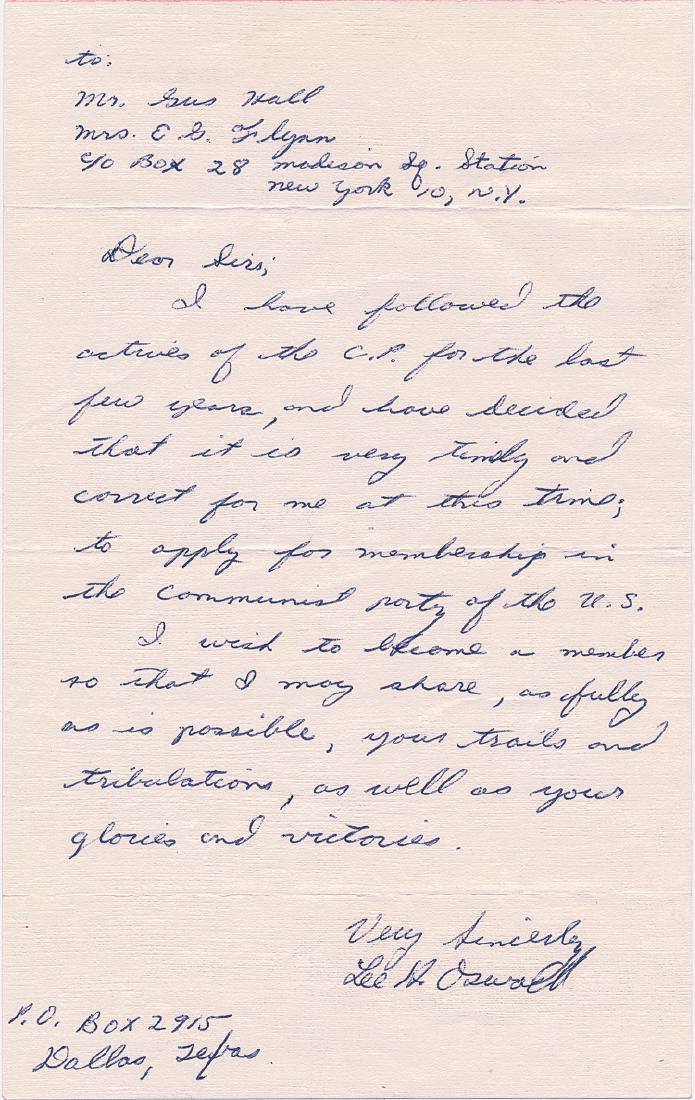 to:
Mr. Gus Hall
Mrs. E G. Flynn
c/o Box 28 madison Sq. Station
new york 10, N.Y.
Dear Sirs;
I have followed the
actives of the C.P. for the last
few years, and have decided
that it is very timly and
correct for me at this time;
to apply for membership in
the communist party of the U.S.
I wish to become a member
so that I may share, as fully
as is possible, your trails and
tribulations, as well as your
glories and victories.
Very Sincerly
Lee H. Oswald
P.O. Box 2915
Dallas, Texas